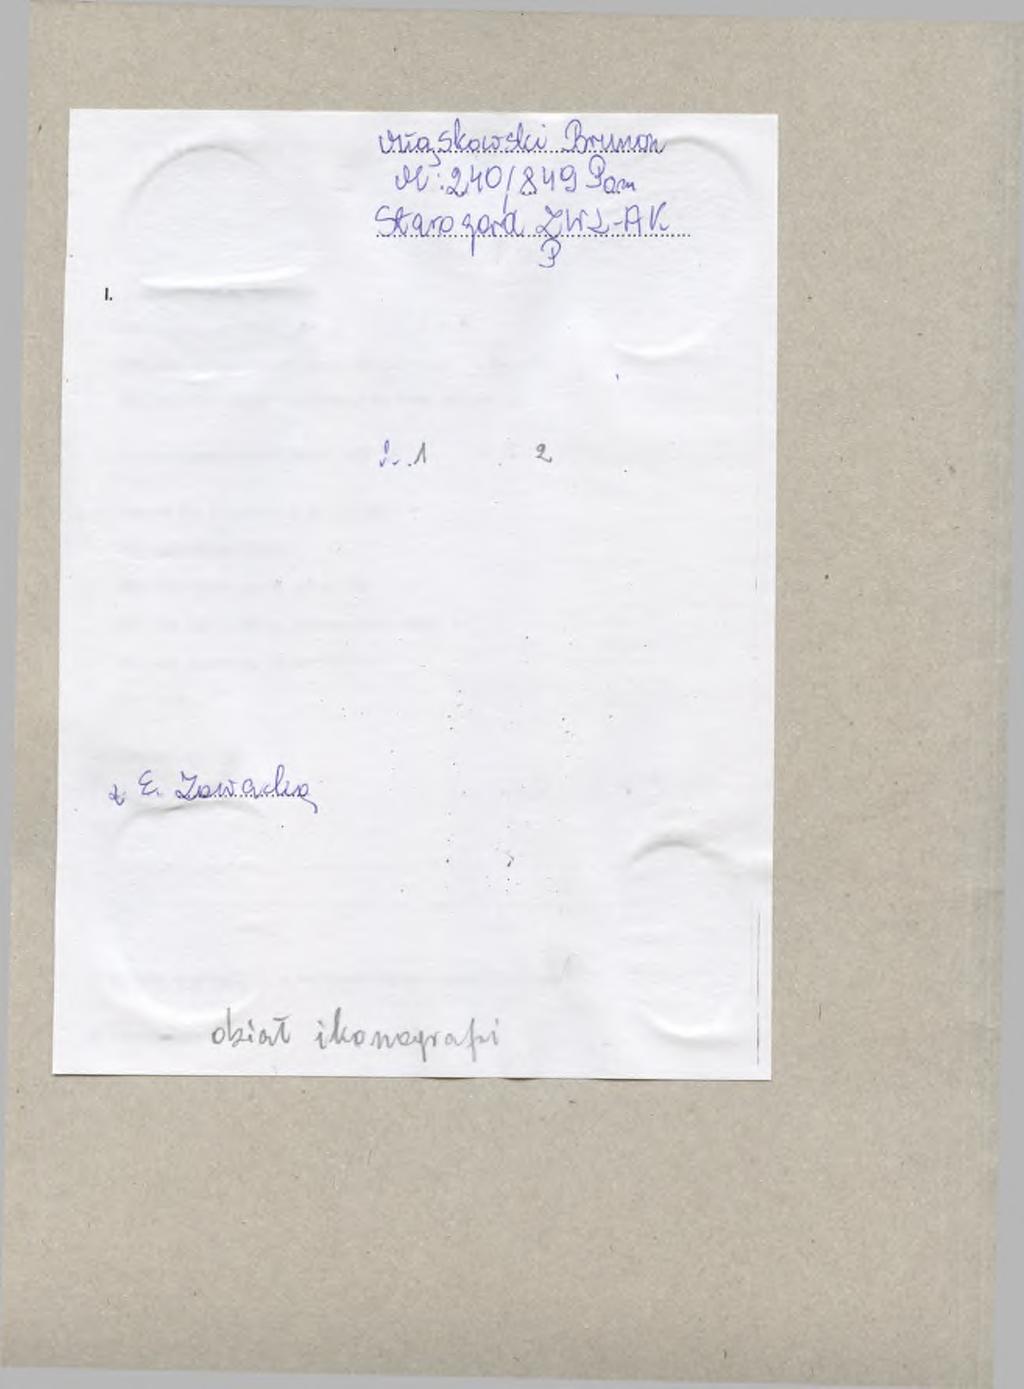 Miąskowski Brunon
M: 240/849 Pom
Starogard ZWZ-AK
P
I.
1 2
z E. Zawacką
dział ikonografi